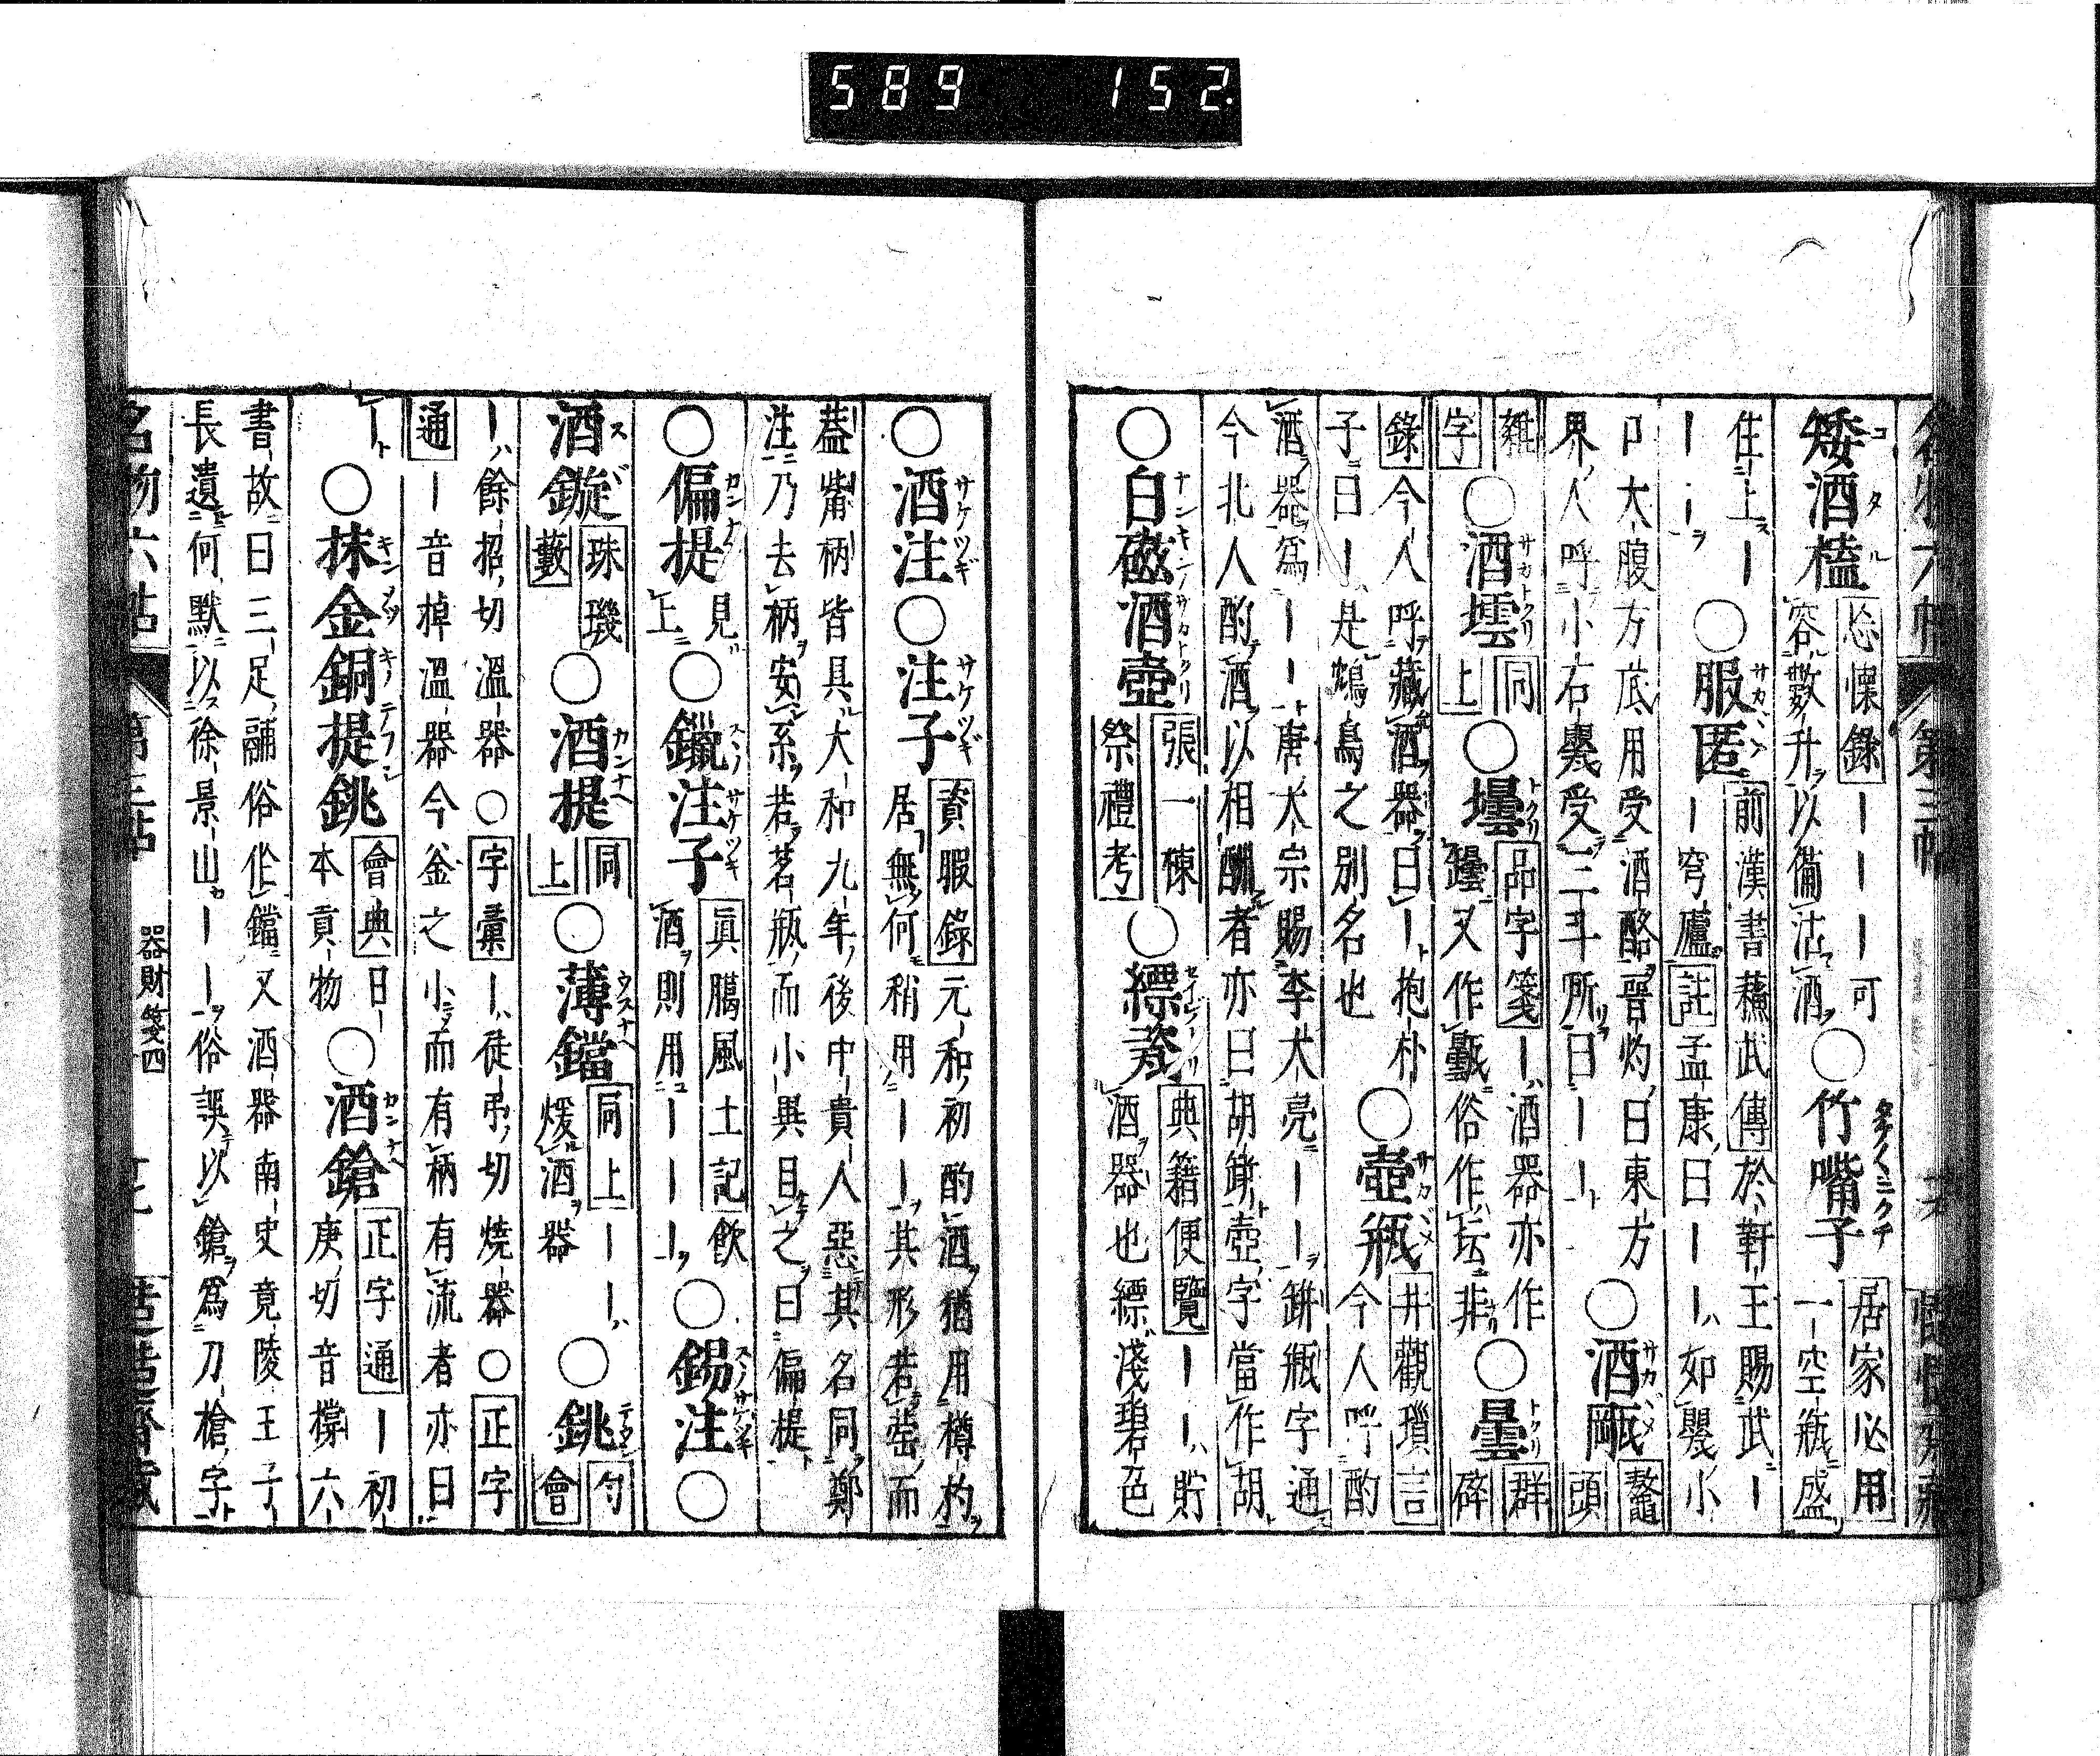 矮酒榼 コタル
忩慄錄————可
容數升以備沽酒
○竹嘴子
居家必用
一空瓶盛
住上—
———
○服匿
前漢書蘇武傳於靬王賜武—
—穹廬註孟康曰——如甖小
口大腹方底用受酒酪晉灼曰東方
界人呼小石甖受二斗所曰——
○酒瓨
鼇
頭
雜
字
○酒壜 サカトクリ
同
上
○壜 トクリ
品字箋—酒器亦作
罎又作甔俗作坛非
○曇 トクリ
群
碎
錄今人呼藏酒器曰—抱朴
子曰—是鴆鳥之別名也
○壺瓶
井觀瑣言
今人呼酌
酒器爲——唐太宗賜李大亮——缾瓶字通
今北人酌酒以相酬者亦曰胡缾壺字當作胡
○白磁酒壺 ナンキンノサカトクリ
張一棟
祭禮考
○縹瓷
典籍便覽——貯
酒器也縹淺碧色
○酒注 サケツギ ○注子 サケツギ
資暇錄元和初酌酒猶用樽杓
居無何稍用——其形若罃而
蓋觜柄皆具大和九年後中貴人惡其名同鄭
注乃去柄安系若茗瓶而小異目之曰偏提
○偏提 カンナベ
見
上
○鑞注子 スヽノサケツギ
眞臘風土記飲
酒則用———
○錫注 スヽノサケツギ ○
酒鏇
珠璣
藪
○酒提 カンナベ
同
上
○薄鐺 ウスナベ
同上——
煖酒器
○銚
勻
會
—餘招切溫器○字彙—徒弔切燒器○正字
通—音掉溫器今釜之小而有柄有流者亦曰
—
○抹金銅提銚
會典曰
本貢物
○酒鎗 カンナベ
正字通—初
庚切音橕六
書故曰三足鬴俗作鐺又酒器南史竟陵王子
長遺何默以徐景山——俗誤以鎗爲刀槍字
名物六帖 第三帖 器財箋四